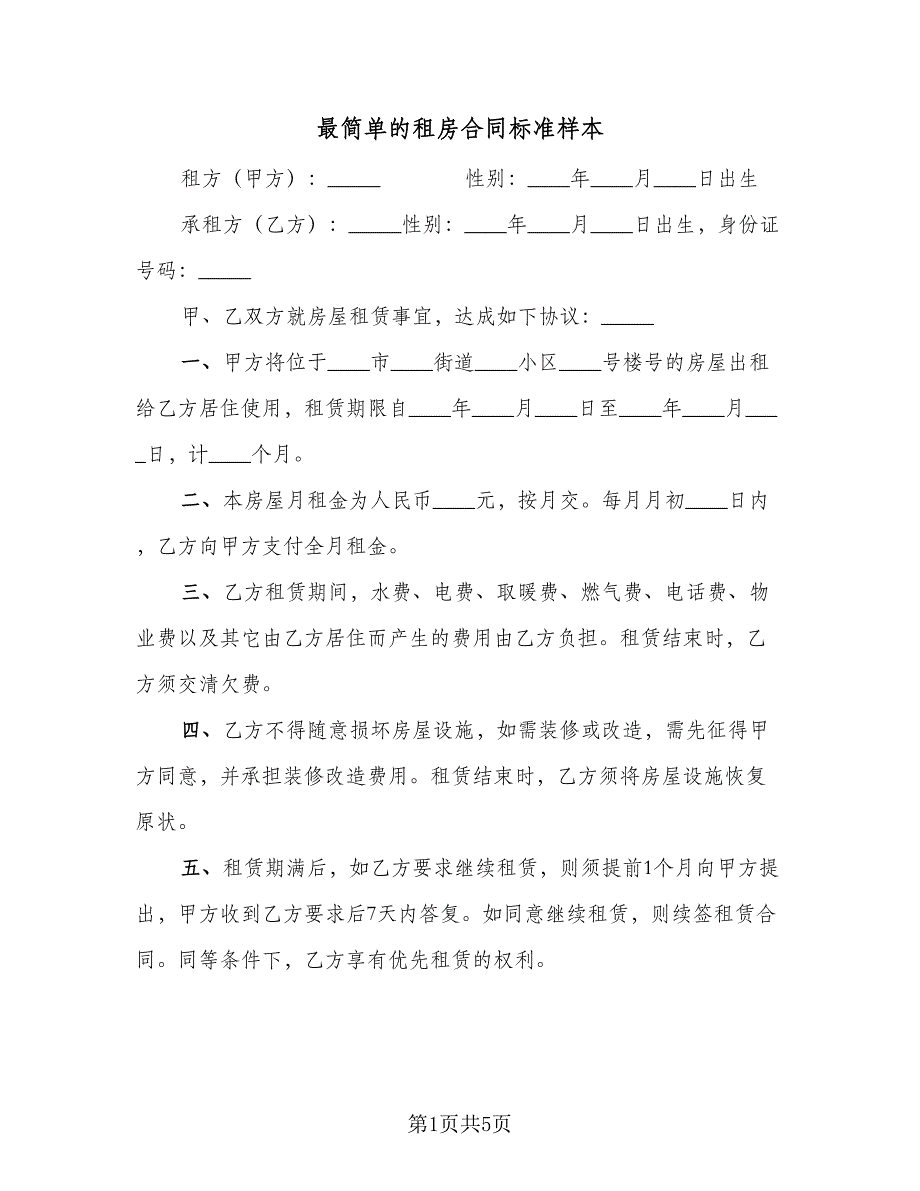 最简单的租房合同标准样本
租方（甲方）：_____ 性别：____年____月____日出生
承租方（乙方）：_____性别：____年____月____日出生，身份证
号码：_____
甲、乙双方就房屋租赁事宜，达成如下协议：_____
一、甲方将位于____市____街道____小区____号楼号的房屋出租
给乙方居住使用，租赁期限自____年____月____日至____年____月___
_日，计____个月。
二、本房屋月租金为人民币____元，按月交。每月月初____日内
，乙方向甲方支付全月租金。
三、乙方租赁期间，水费、电费、取暖费、燃气费、电话费、物
业费以及其它由乙方居住而产生的费用由乙方负担。租赁结束时，乙
方须交清欠费。
四、乙方不得随意损坏房屋设施，如需装修或改造，需先征得甲
方同意，并承担装修改造费用。租赁结束时，乙方须将房屋设施恢复
原状。
五、租赁期满后，如乙方要求继续租赁，则须提前1个月向甲方提
出，甲方收到乙方要求后7天内答复。如同意继续租赁，则续签租赁合
同。同等条件下，乙方享有优先租赁的权利。
第1页共5页